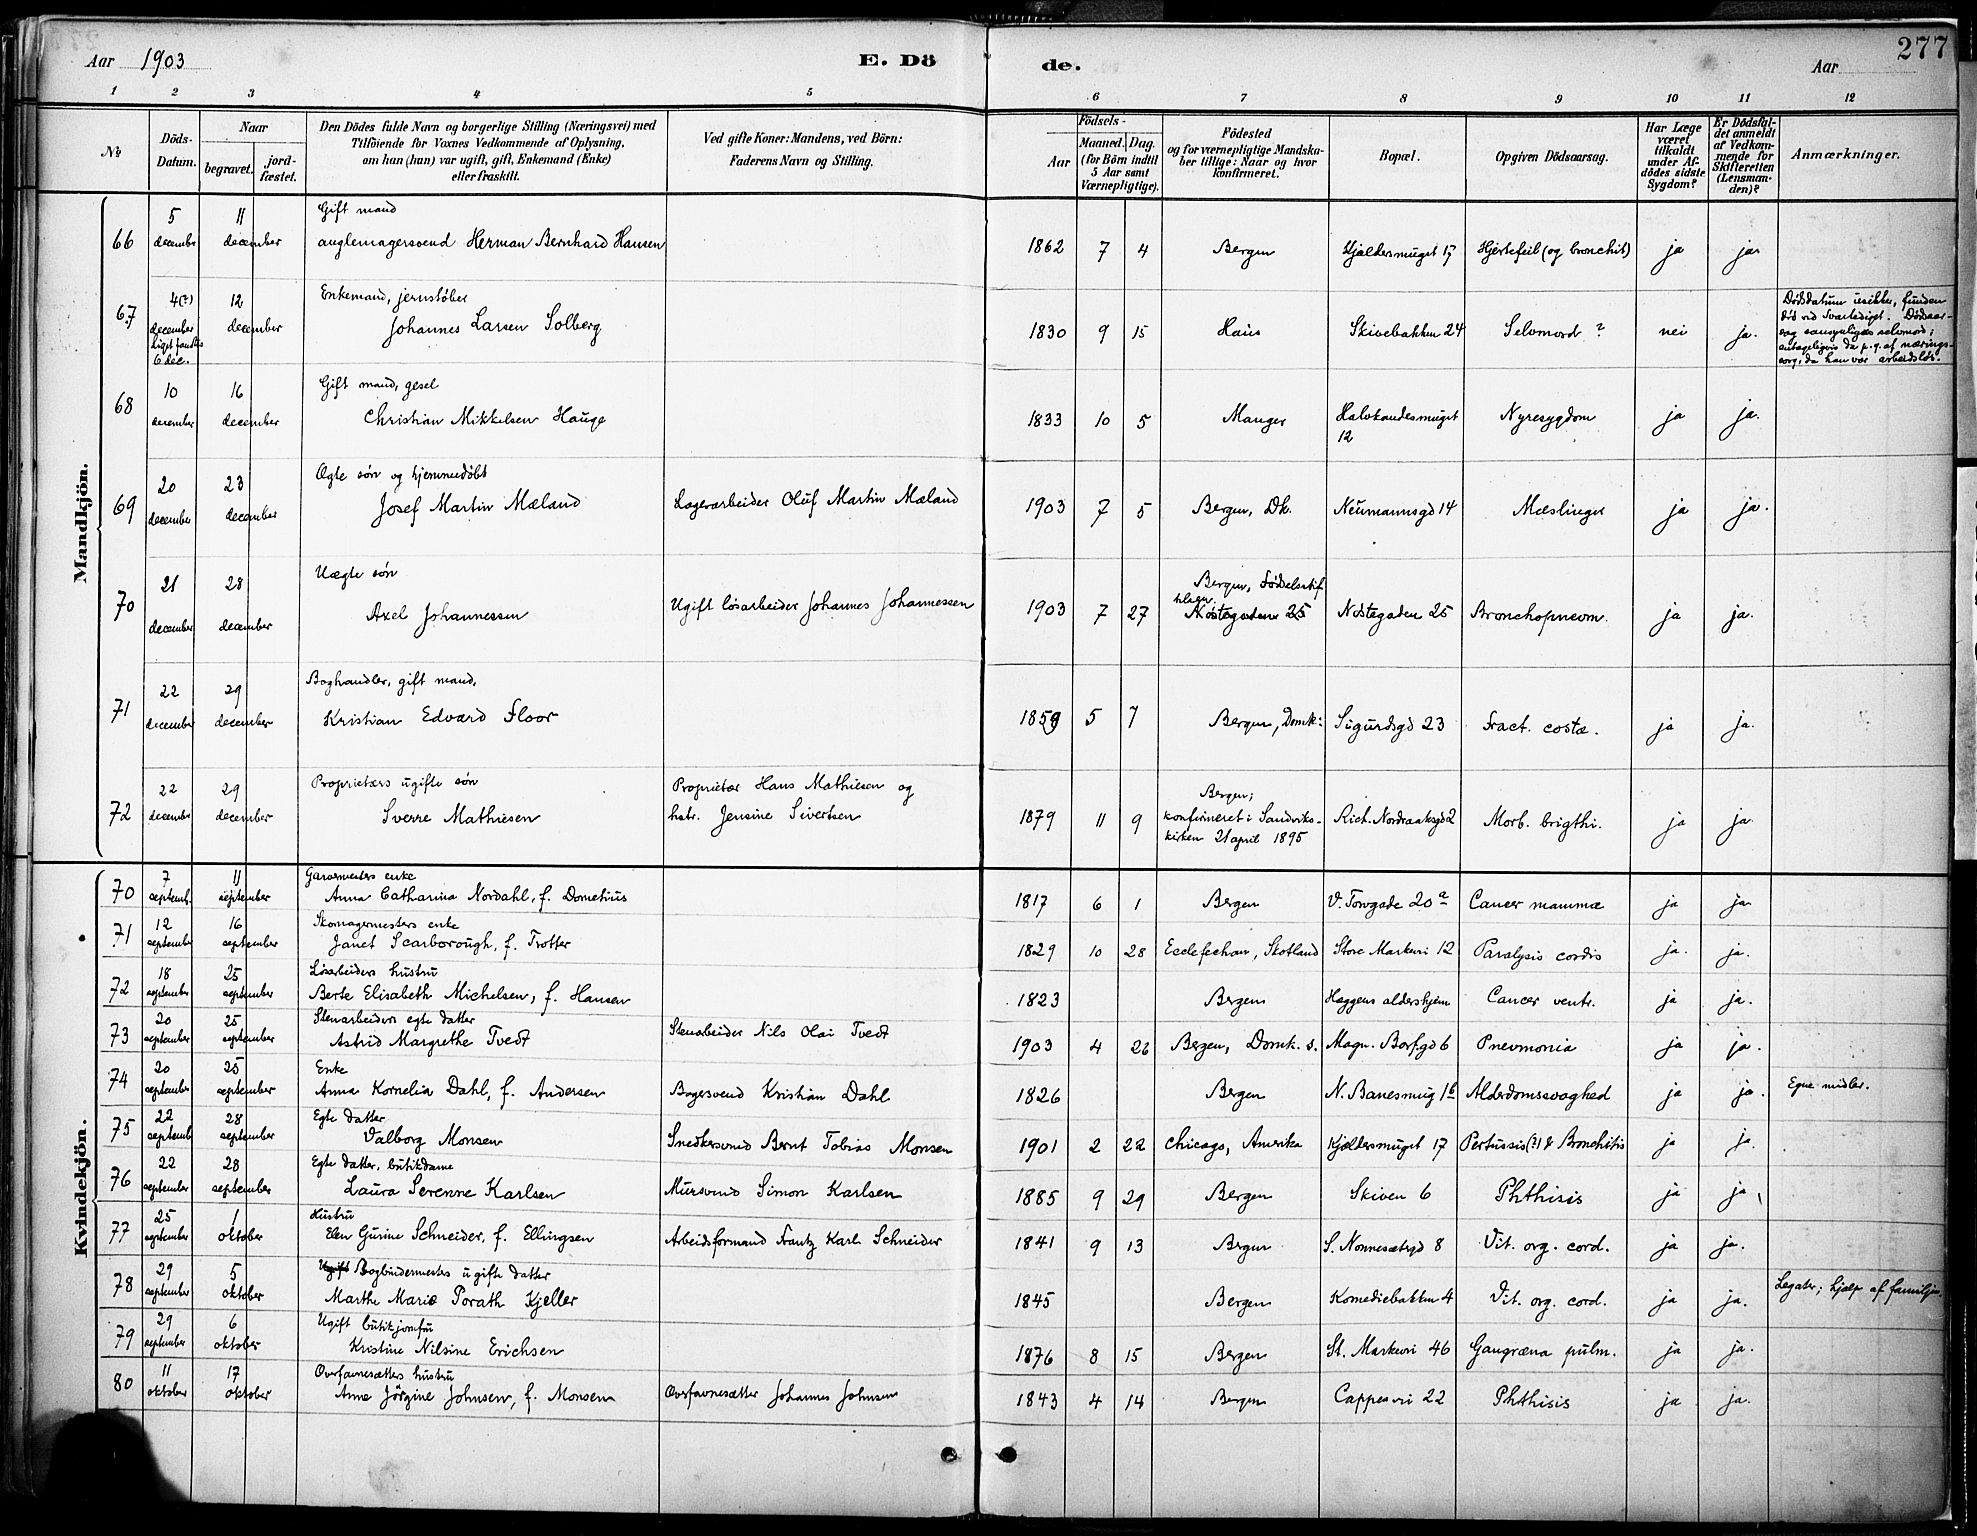 Aar 1903
E. Dö
de.
Aar
277
1 2 3 4 5 6 7 8 9 10 11 12
№
Döds-
Datum.
Naar
begravet.
jord-
fæstet.
Den Dödes fulde Navn og borgerlige Stilling (Næringsvei) med
Tilföiende for Voxnes Vedkommende af Oplysning,
om hun (han) var ugift, gift, Enkemand (Enke)
eller fraskilt.
Ved gifte Koner: Mandens, ved Börn:
Faderens Navn og Stilling.
Födsels-
Aar
Maaned.
Dag.
(for Börn indtil
5 Aar samt
Værnepligtige).
Födested
og for værnepligtige Mandska-
ber tillige: Naar og hvor
konfirmeret.
Bopæl.
Opgiven Dödsaarsag.
Har Læge
været
tilkaldt
under Af-
dödes sidste
Sygdom?
Er Dödsfal-
det anmeldt
af Vedkom-
mende for
Skifteretten
(Lensman-
den)?
Anmærkninger.
Mandkjön.
66 5 december 11 december
Gift mand
Herman Bernhard Hansen
1862 7 4 Bergen Kjeldersmuget 17 Hjertefeil (og bronchit) ja ja
67 4(?) december 12 december
Liget fandtes
6 dec.
Enkemand, jernstøber
Johannes Larsen Solberg
1830 9 15 Haus Skivebakken 24 Selvmord ? nei ja.
Dødsdatum usikker, funden
død ved Svartediget. Dødsaar-
sag sansynligvis selvmord;
antageligvis da p. g. af nærings-
sorg, da han var arbeidsløs.
68 10 december 16 december
Gift mand, gesel
Christian Mikkelsen Hauge
1833 10 5 Manger Halvkandesmuget
12
Nyresygdom ja ja.
69 20 december 23 december
Ægte søn og hjemmedøbt
Josef Martin Mæland
Lagerarbeider Oluf Martin Mæland
1903 7 5 Bergen, Dk. Neumannsgd 14 Mæslinger ja ja.
70 21 december 28 december
Uægte søn
Axel Johannessen
Ugift løsarbeider Johannes Johannessen
1903 7 27 Bergen, Fødselsstif
telsen.
Nøstegaden 25
Nøstegaden 25 Bronchopneum. ja ja.
71 22 december 29 december
Boghandler, gift mand,
Kristian Edvard Floor
1859 5 7 Bergen, Domk: Sigurdsgd 23 Fract. costæ. ja ja.
72 22 december 29 december
Proprietærs ugifte søn
Sverre Mathiesen
Proprietær Hans Mathiesen og
hstr. Jensine Sivertsen
1879 11 9 Bergen;
konfirmeret i Sandviks-
kirken 21 april 1895
Rich. Nordraaksgd 2 Morb. brigthi. ja ja
Kvindekjön.
70 7 septemb. 11 september
Garvermesters enke
Anna Catharina Nordahl, f. Dometius
1817 6 1 Bergen V. Torvgade 20 a Cancer mammæ ja ja
71 12 september 16 september
Skomagermesters enke
Janet Scarborough, f. Trotter
1829 10 28 Ecclefechan, Skotland Store Markvei 12 Paralysis cordis ja. ja.
72 18 september 25 september
Løsarbeiders hustru
Berte Elisabeth Michelsen, f. Hansen
1823 Bergen Haggens aldershjem Cancer ventr. ja ja.
73 20 september 25 september
Stenarbeiders egte datter
Astrid Margrethe Tvedt
Stenarbeider Nils Olai Tvedt
1903 4 26 Bergen, Domk. s. Magn. Barf.gd 6 Pnevmonia ja ja.
74 20 september 25 september
Enke
Anna Kornelia Dahl, f. Andersen
Bagersvend Kristian Dahl
1826 Bergen N. Banesmug 1b Alderdomssvaghed ja ja.
Egne midler.
75 22 septemb 28 september
Egte datter
Valborg Monsen
Snedkersvend Bernt Tobias Monsen
1901 2 22 Chicago, Amerika Kjeldersmuget 17 Pertussis(?) & Bronchitis ja ja.
76 22 september 28 september
Egte datter, butikdame
Laura Serenne Karlsen
Mursvend Simon Karlsen
1885 9 29 Bergen Skiven 6 Phthisis ja ja
77 25 september 1 oktober
Hustru
Elen Gurine Schneider, f. Ellingsen
Arbeidsformand Frantz Karl Schneider
1841 9 13 Bergen S. Nonnesætergd 8 Vit. org. cord. ja ja.
78 29 september 5 oktober
Ugift Bogbindermesters ugifte datter
Marthe Marie Porath Kjeller
1845 Bergen Komediebakken 4 Vit. org. cord. ja ja.
Legater; hjælp af familjen.
79 29 september 6 oktober
Ugift butikjomfru
Kristine Nilsine Erichsen
1876 8 15 Bergen St. Markvei 46 Gangræna pulm. ja ja.
80 11 oktober 17 oktober
Overfavnesætters hustru
Anne Jörgine Johnsen, f. Monsen
Overfavnesætter Johannes Johnsen
1843 4 14 Bergen Cappesvei 22 Phthisis ja ja.